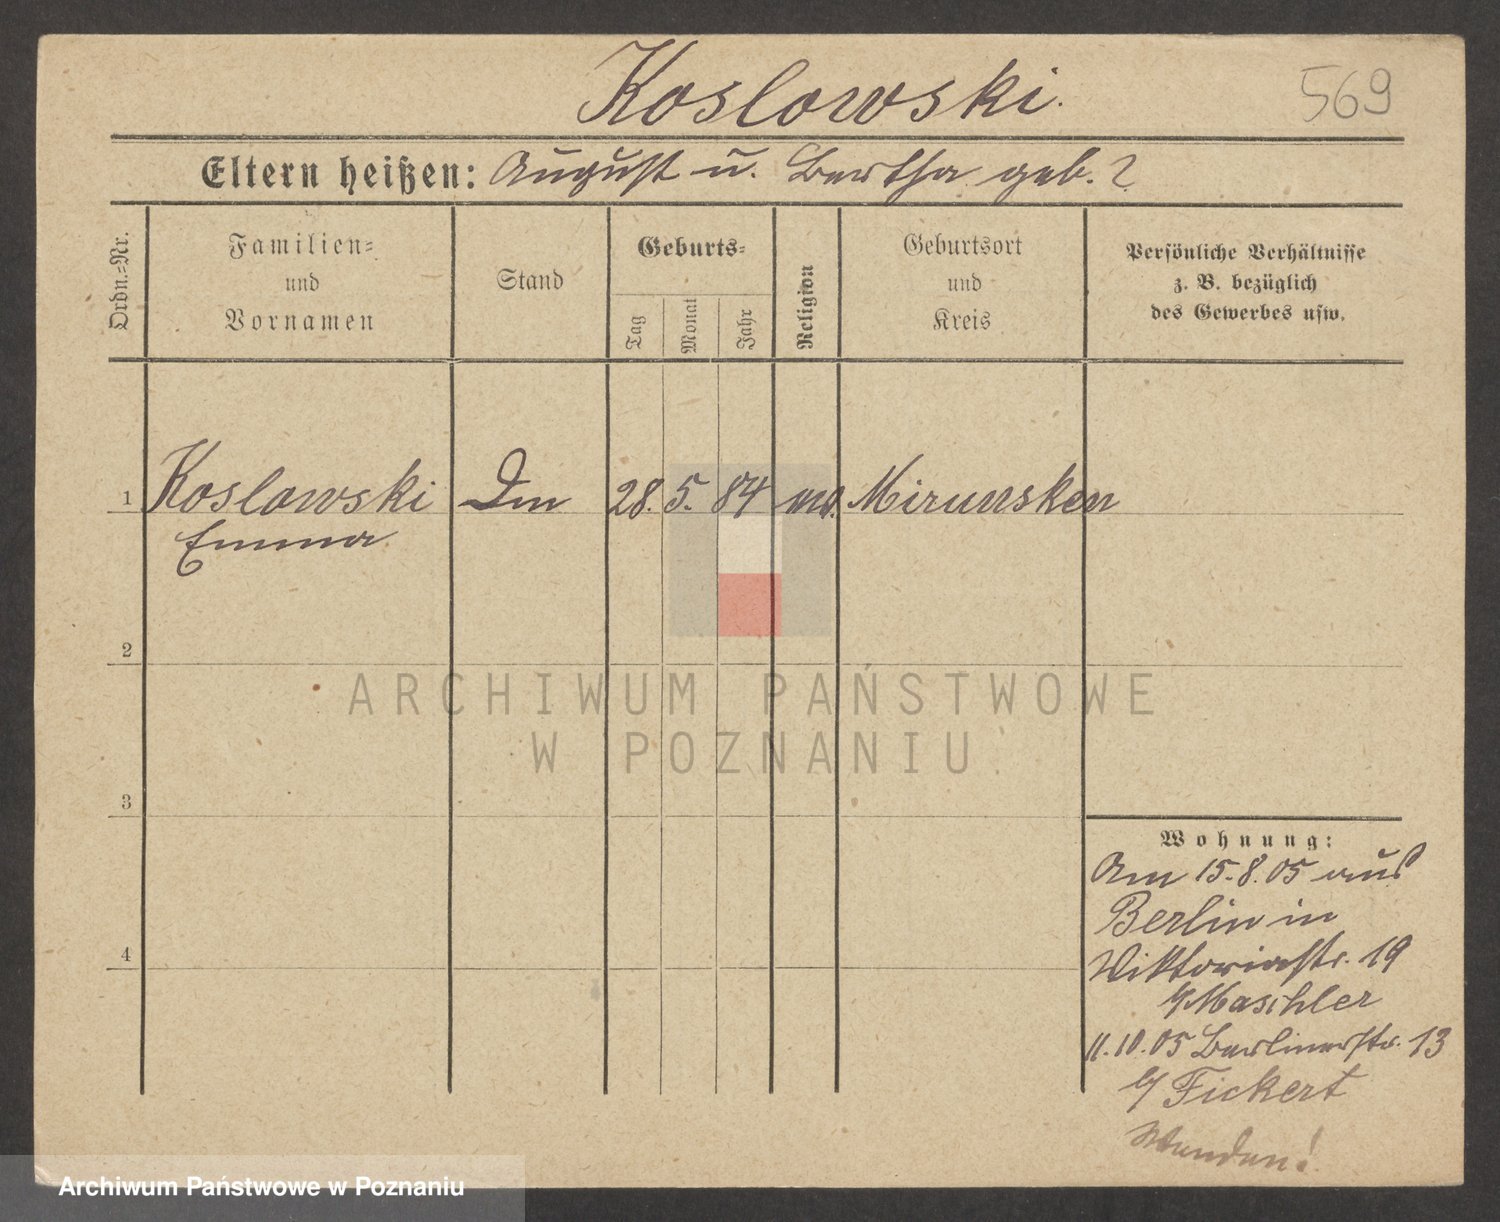 Koslowski.
569
Eltern heißen: August u. Bertha geb. ?
Ordn.=Nr.
Familien=
und
Vornamen
Stand
Geburts=
Tag
Monat
Jahr
Religion
Geburtsort
und
Kreis
Persönliche Verhältnisse
z. B. bezüglich
des Gewerbes usw.
1 Koslowski 28. 5. 84 Mirunsken
Emma
2
3
4
Wohnung:
Am 15.8.05 aus
Berlin in
Viktoriastr. 19
b/ Maschler
11.10.05 Berlinerstr. 13
b/ Fickert
Wenden!
ARCHIWUM PAŃSTWOWE
W POZNANIU
Archiwum Państwowe w Poznaniu